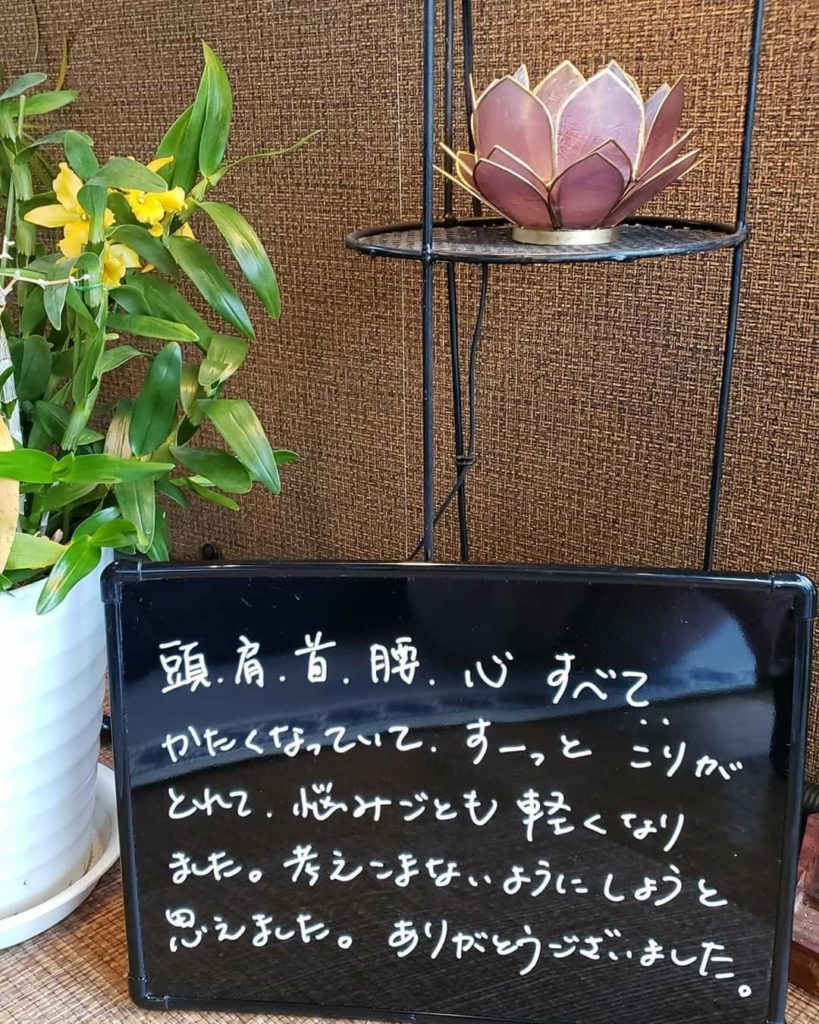 頭.肩.首.腰.心 すべて
かたくなっていて、すーっと こりが
とれて、悩みごとも 軽くなり
ました。考えこまないようにしようと
思えました。ありがとうございました。